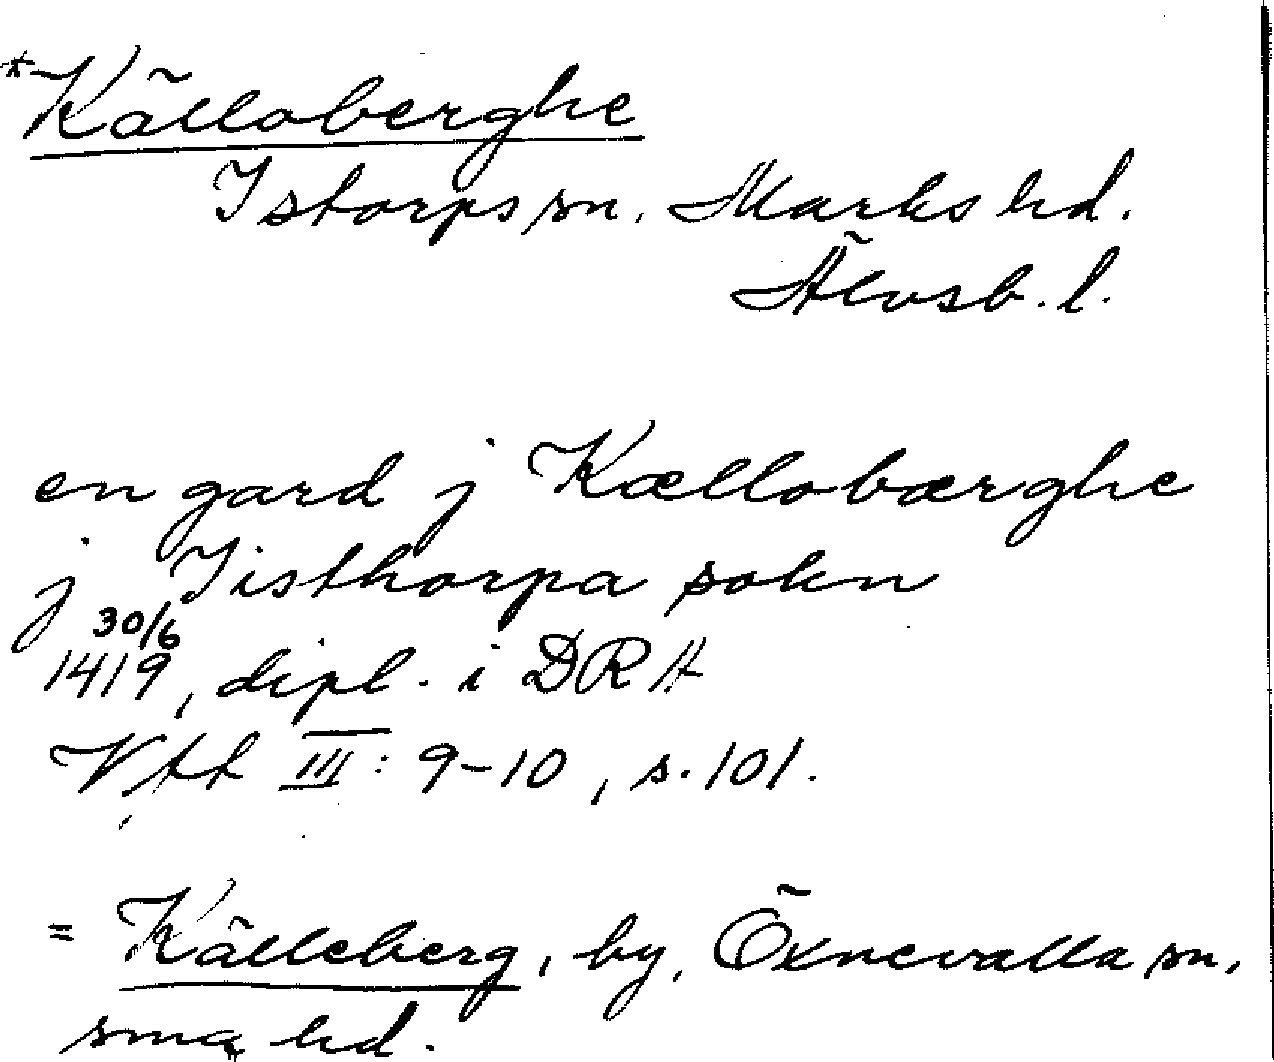 *Källoberghe
Istorps sn. Marks hd.
Älvsb. l.
en gard j Kællobærghe
j Jisthorpa sokn
30/6
1419, dipl. i DRA
Vftt III: 9-10, s. 101.
= Källeberg, by, Öxnevalla sn,
sma hd.